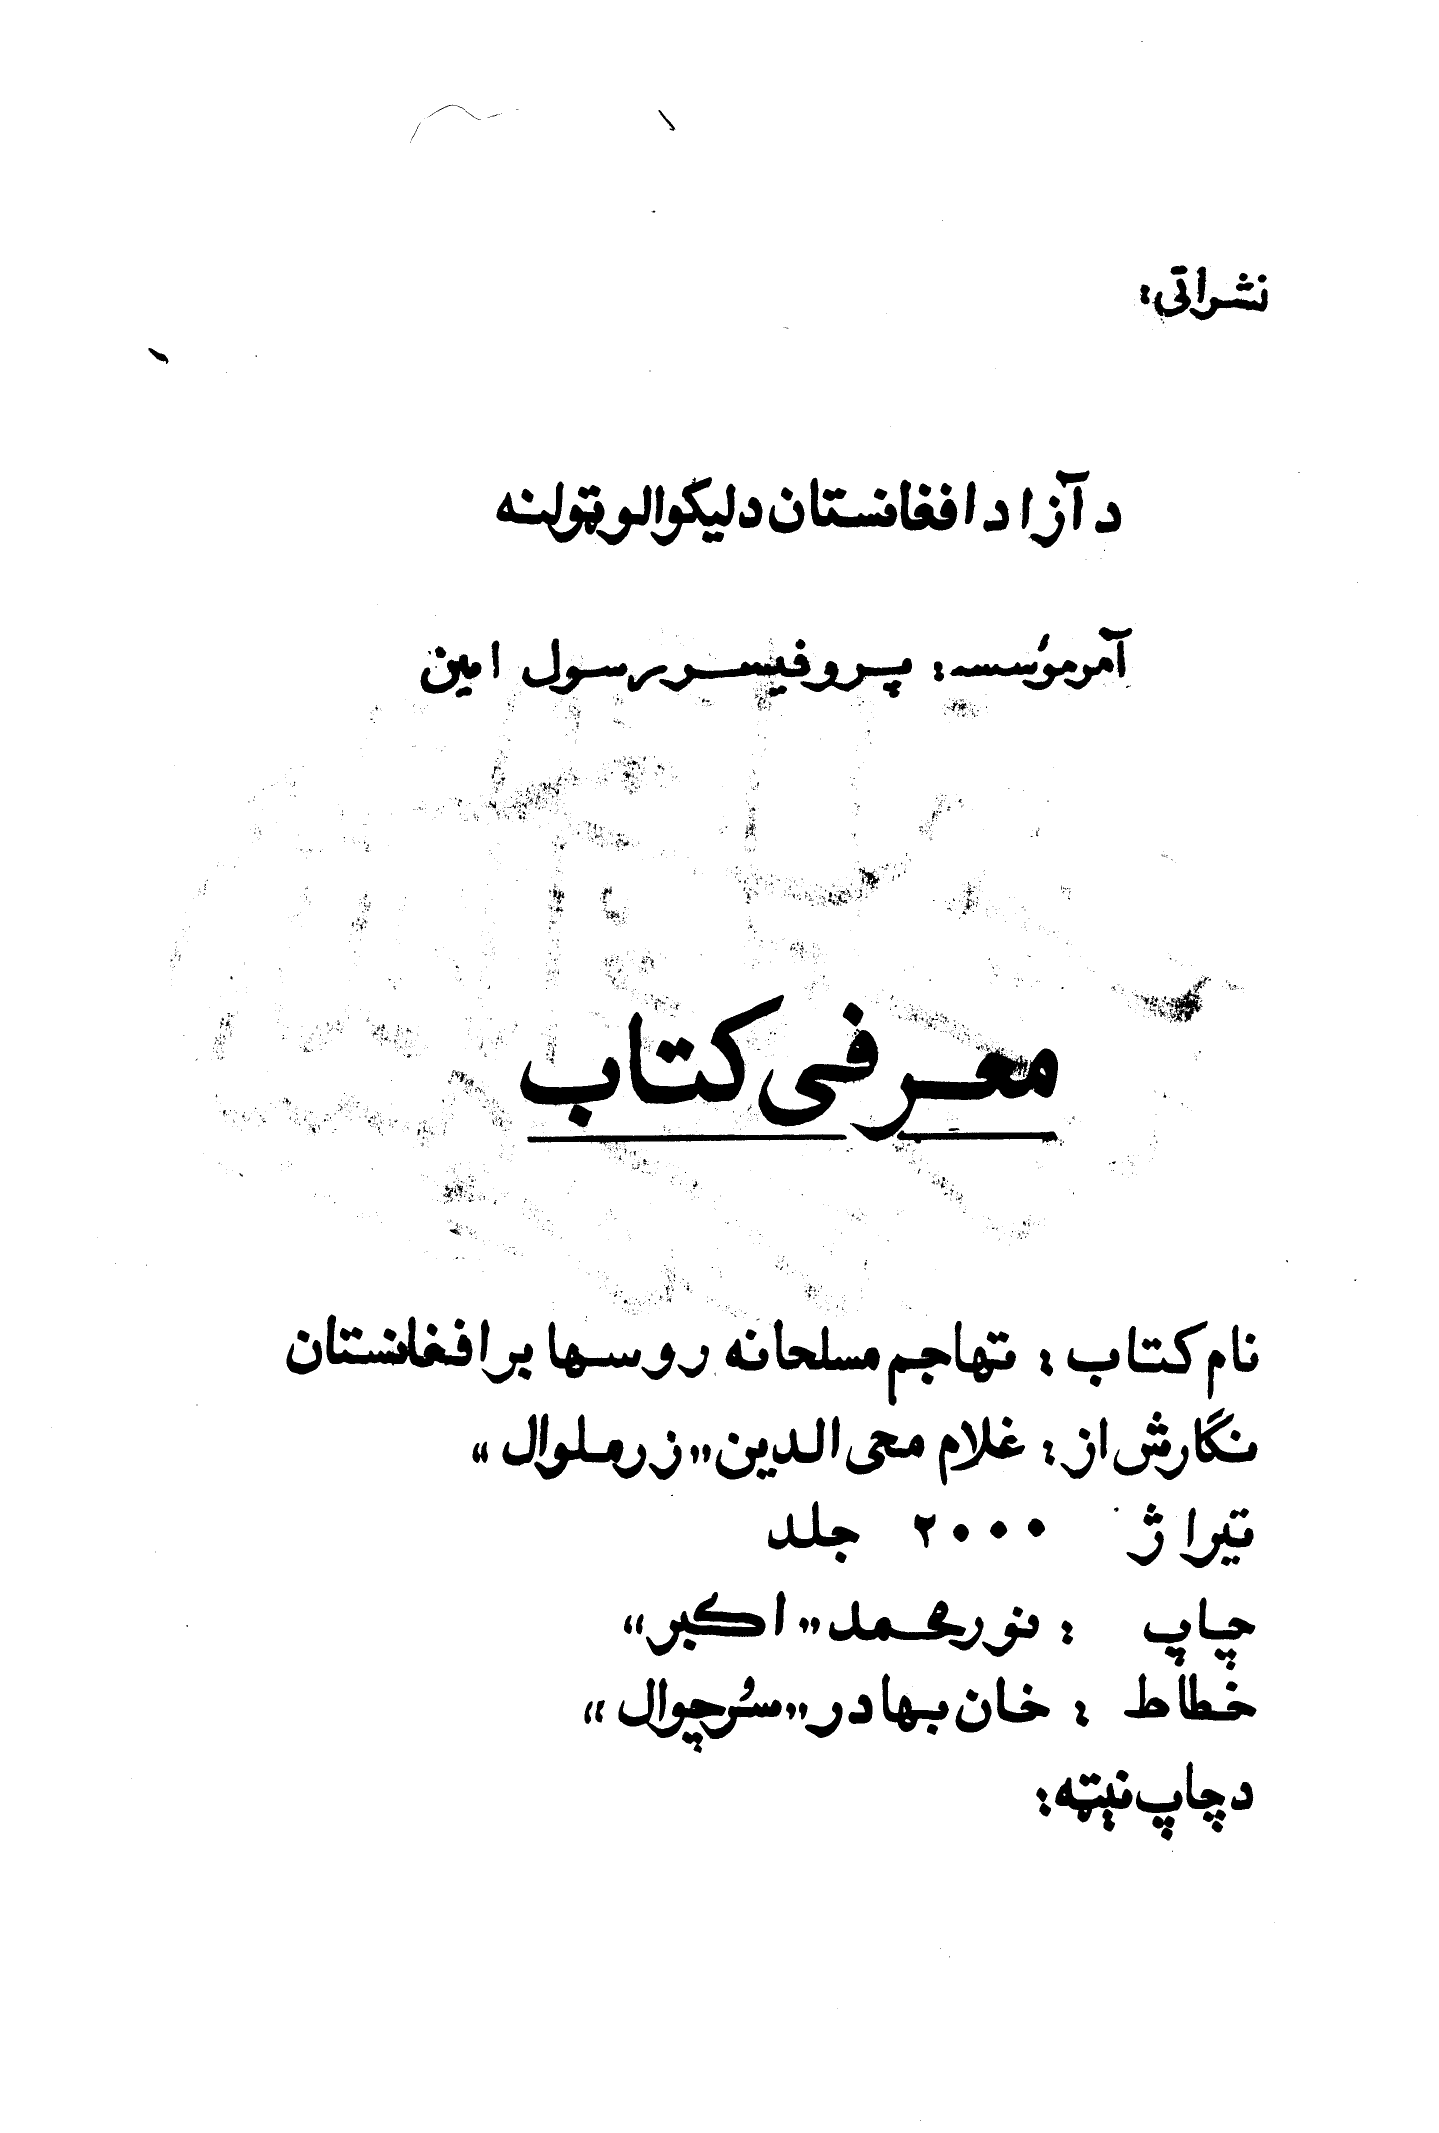 نشراتی:
د آزاد افغانستان د لیکوالو ټولنه
آمر مؤسسه: پروفیسر رسول امین
معرفی کتاب
نام کتاب: تهاجم مسلحانه روسها بر افغانستان
نگارش از: غلام محی الدین «زرملوال»
تیراژ ۲۰۰۰ جلد
چاپ : نور محمد «اکبر»
خطاط : خان بهادر «سُرچوال»
د چاپ نېټه: